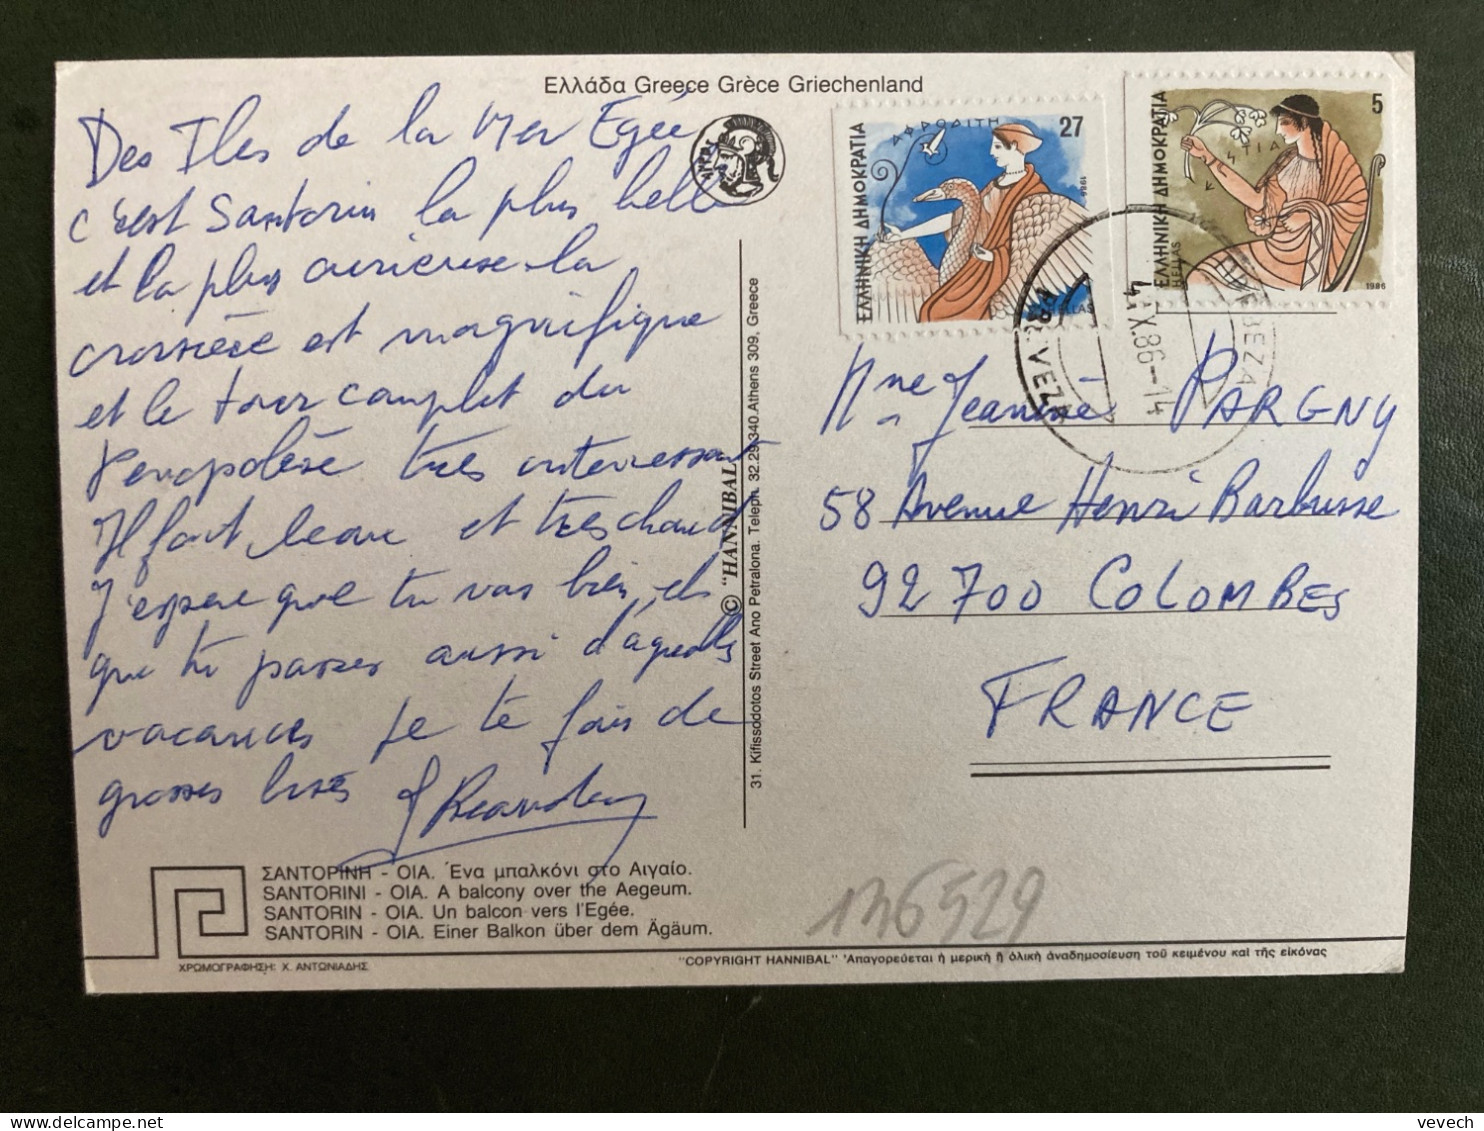 Ελλάδα Greece Grèce Griechenland
Des Iles de la Mer Egée
c'est Santorin la plus belle
et la plus curieuse la
croisière est magnifique
et le tour complet du
Peropolèse très interressant
Il fait beau et très chaud
J'espère que tu vas bien et
que tu passes aussi d'agréables
vacances je te fais de
grosses bises
ΣΑΝΤΟΡΙΝΗ - ΟΙΑ. Ένα μπαλκόνι στο Αιγαίο.
SANTORINI - OIA. A balcony over the Aegeum.
SANTORIN - OIA. Un balcon vers l'Egée.
SANTORIN - OIA. Einer Balkon über dem Ägäum.
ΧΡΩΜΟΓΡΑΦΗΣΗ: Χ. ΑΝΤΩΝΙΑΔΗΣ
© "HANNIBAL"
31. Kifissodotos Street Ano Petralona. Teleph. 32.29.340 Athens 309, Greece
ΕΛΛΗΝΙΚΗ ΔΗΜΟΚΡΑΤΙΑ
ΑΦΡΟΔΙΤΗ
27
1986
HELLAS
ΕΛΛΗΝΙΚΗ ΔΗΜΟΚΡΑΤΙΑ
HELLAS
ΕΣΤΙΑ
5
1986
PREVEZA
4.IX.86-14
Mme Jeanine PARGNY
58 Avenue Henri Barbusse
92700 COLOMBES
FRANCE
136529
"COPYRIGHT HANNIBAL" Ἀπαγορεύεται ἡ μερική ἤ ὁλική ἀναδημοσίευση τοῦ κειμένου καί τῆς εἰκόνας
vevech